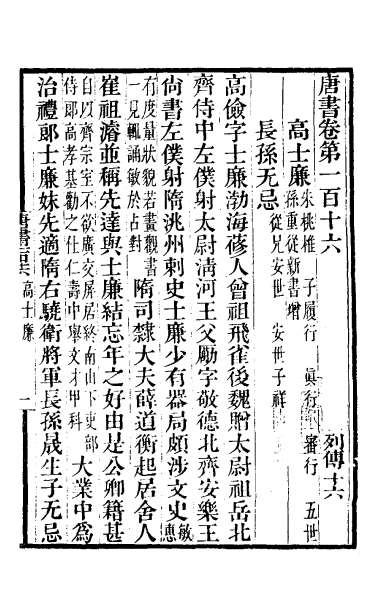 唐書卷第一百十六　列傳十六
高士廉　朱桃椎　子履行　眞行　審行　五世
孫重從新書增　從兄安世　安世子祥
長孫无忌
高儉字士廉渤海蓨人曾祖飛雀後魏贈太尉祖岳北
齊侍中左僕射太尉淸河王父勵字敬德北齊安樂王
尙書左僕射隋洮州刺史士廉少有器局頗涉文史敏惠
有度量狀貌若畫觀書一見輒誦敏於占對　隋司隸大夫薛道衡起居舍人
崔祖濬並稱先達與士廉結忘年之好由是公卿籍甚
自以齊宗室不欲廣交屏居終南山下吏部侍郞高孝基勸之仕仁壽中舉文才甲科　大業中爲
治禮郞士廉妹先適隋右驍衞將軍長孫晟生子无忌
高士廉
一